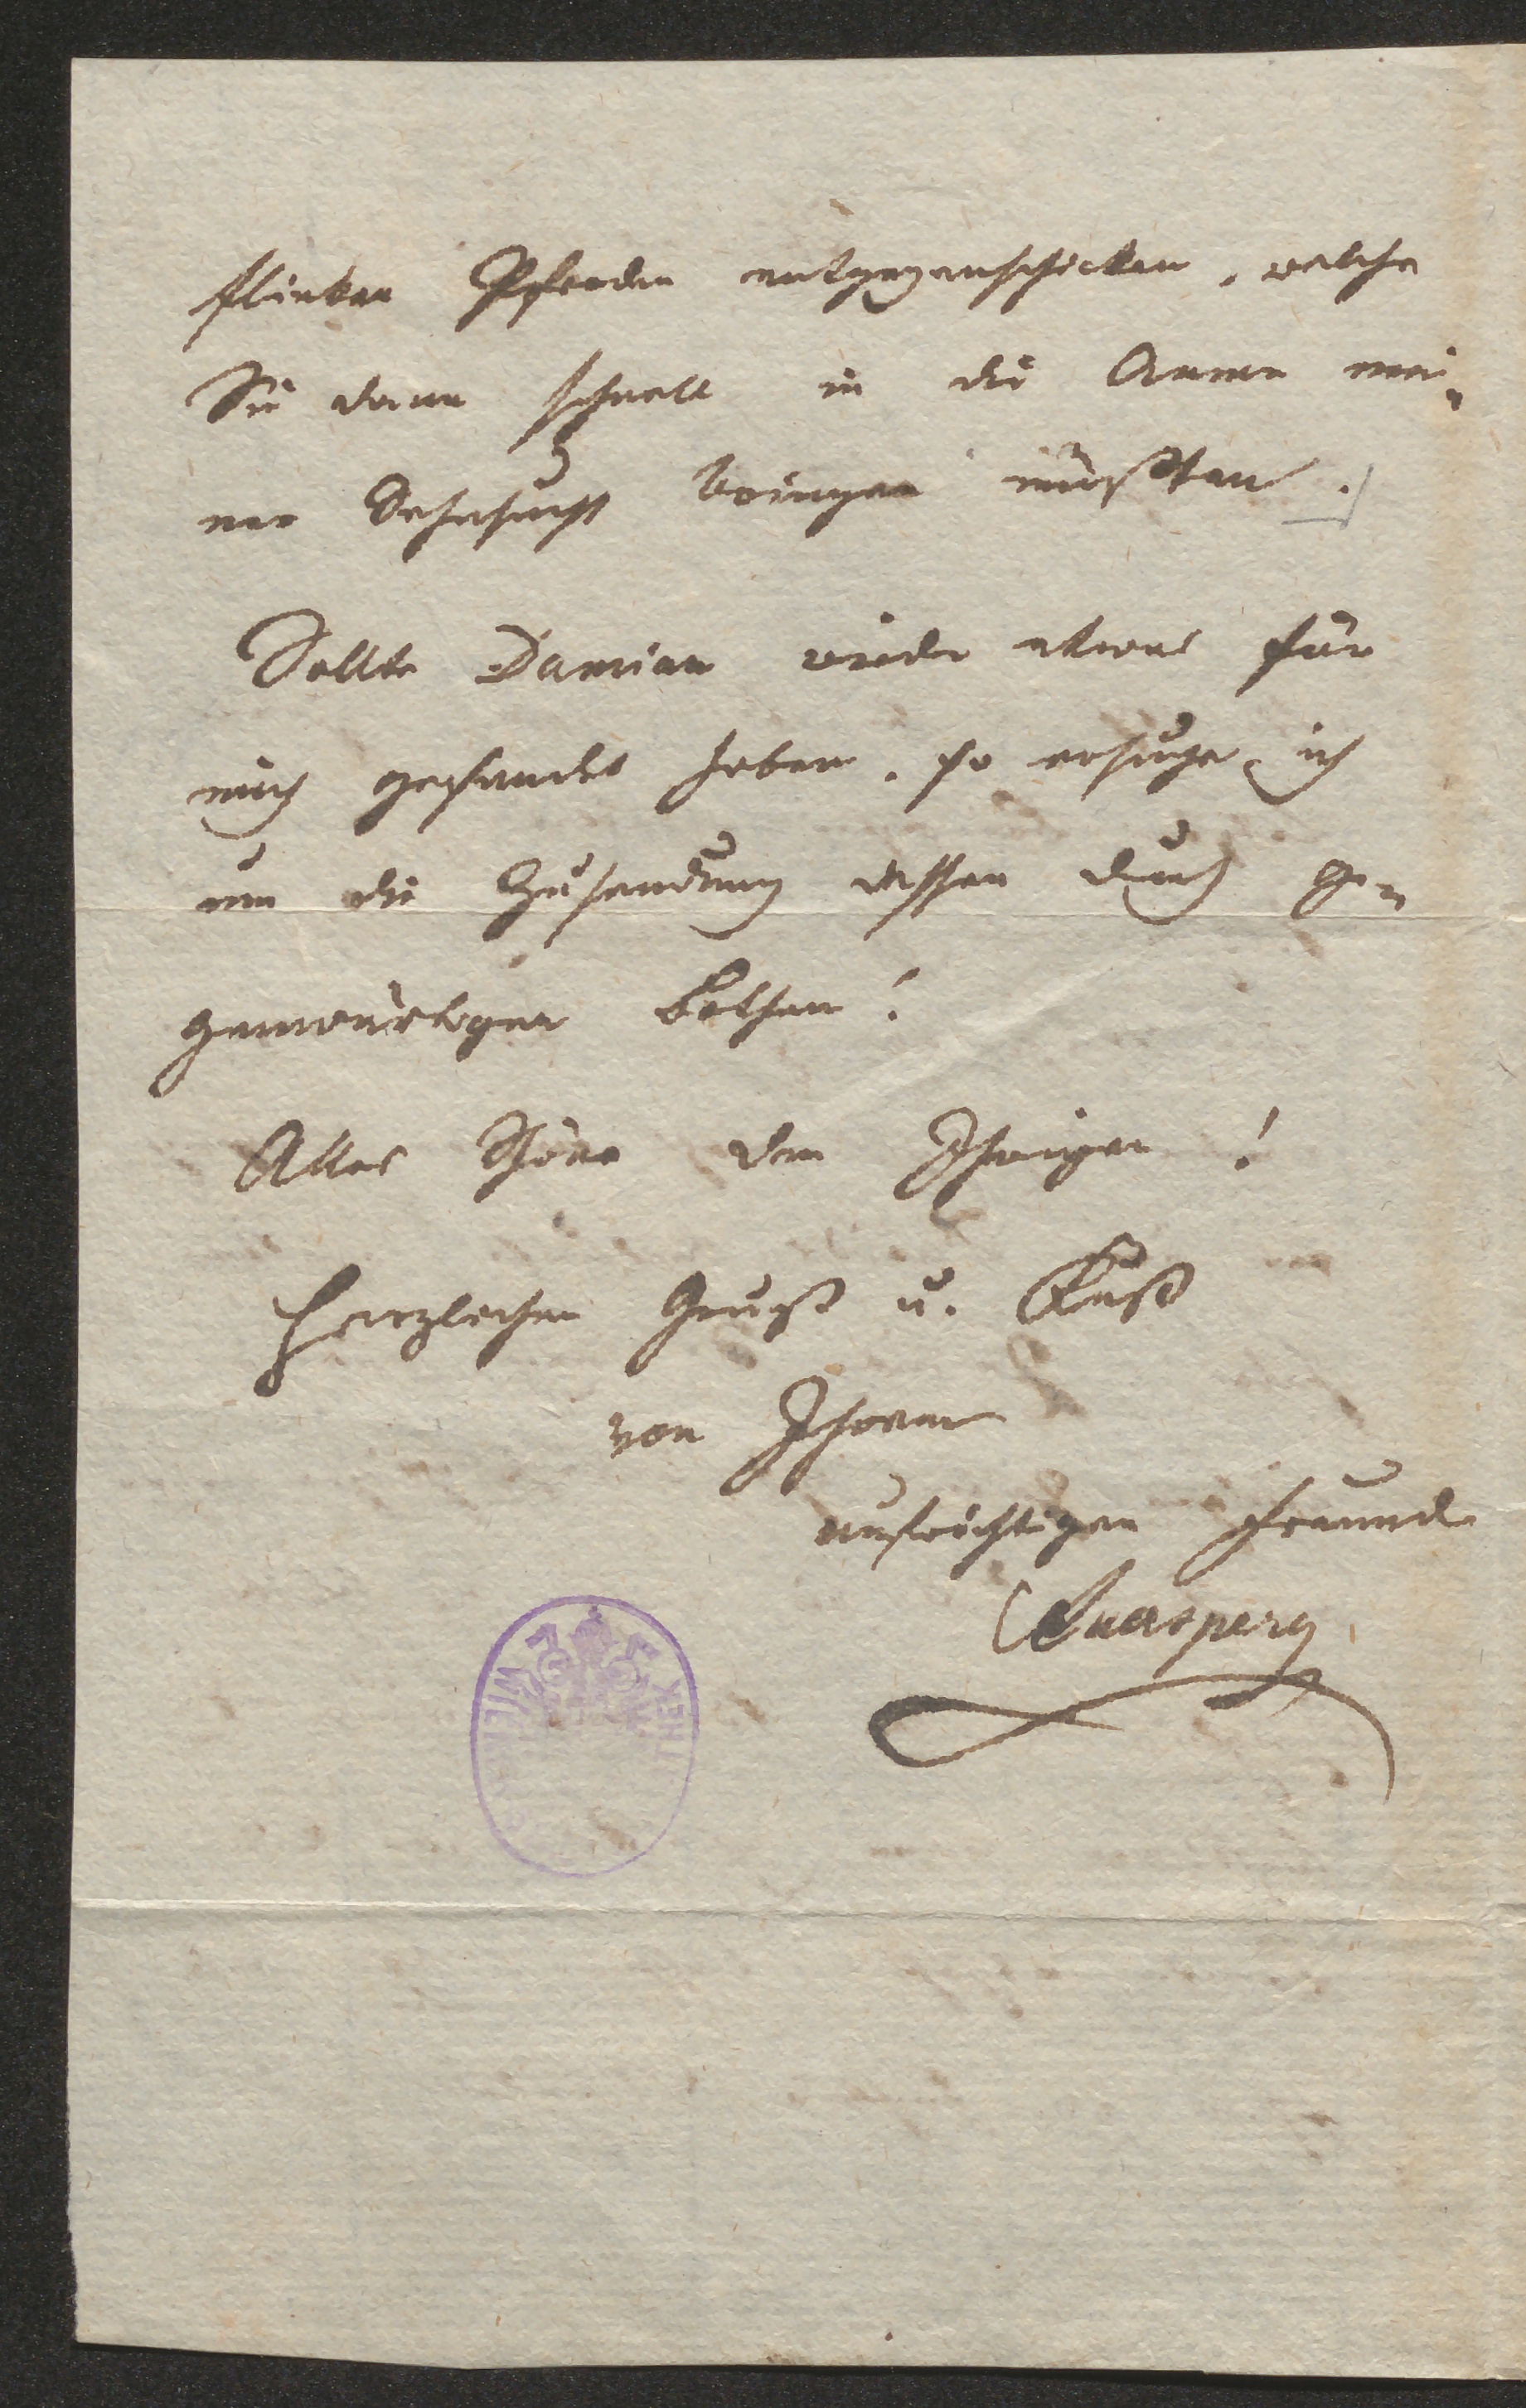 flinken Pferden entgegenschicken, welche
Sie dann schnell in die Arme mei-
ner Sehnsucht bringen müßten.
Sollte Damian wieder etwas für
mich gesandt haben, so ersuche ich
um die Zusendung dessen durch ge-
genwärtigen Bothen!
Alles Schöne den Ihrigen!
Herzlichen Gruß u. Kuß
von Ihrem
aufrichtigen Freunde
Auersperg
WIEN
THEK